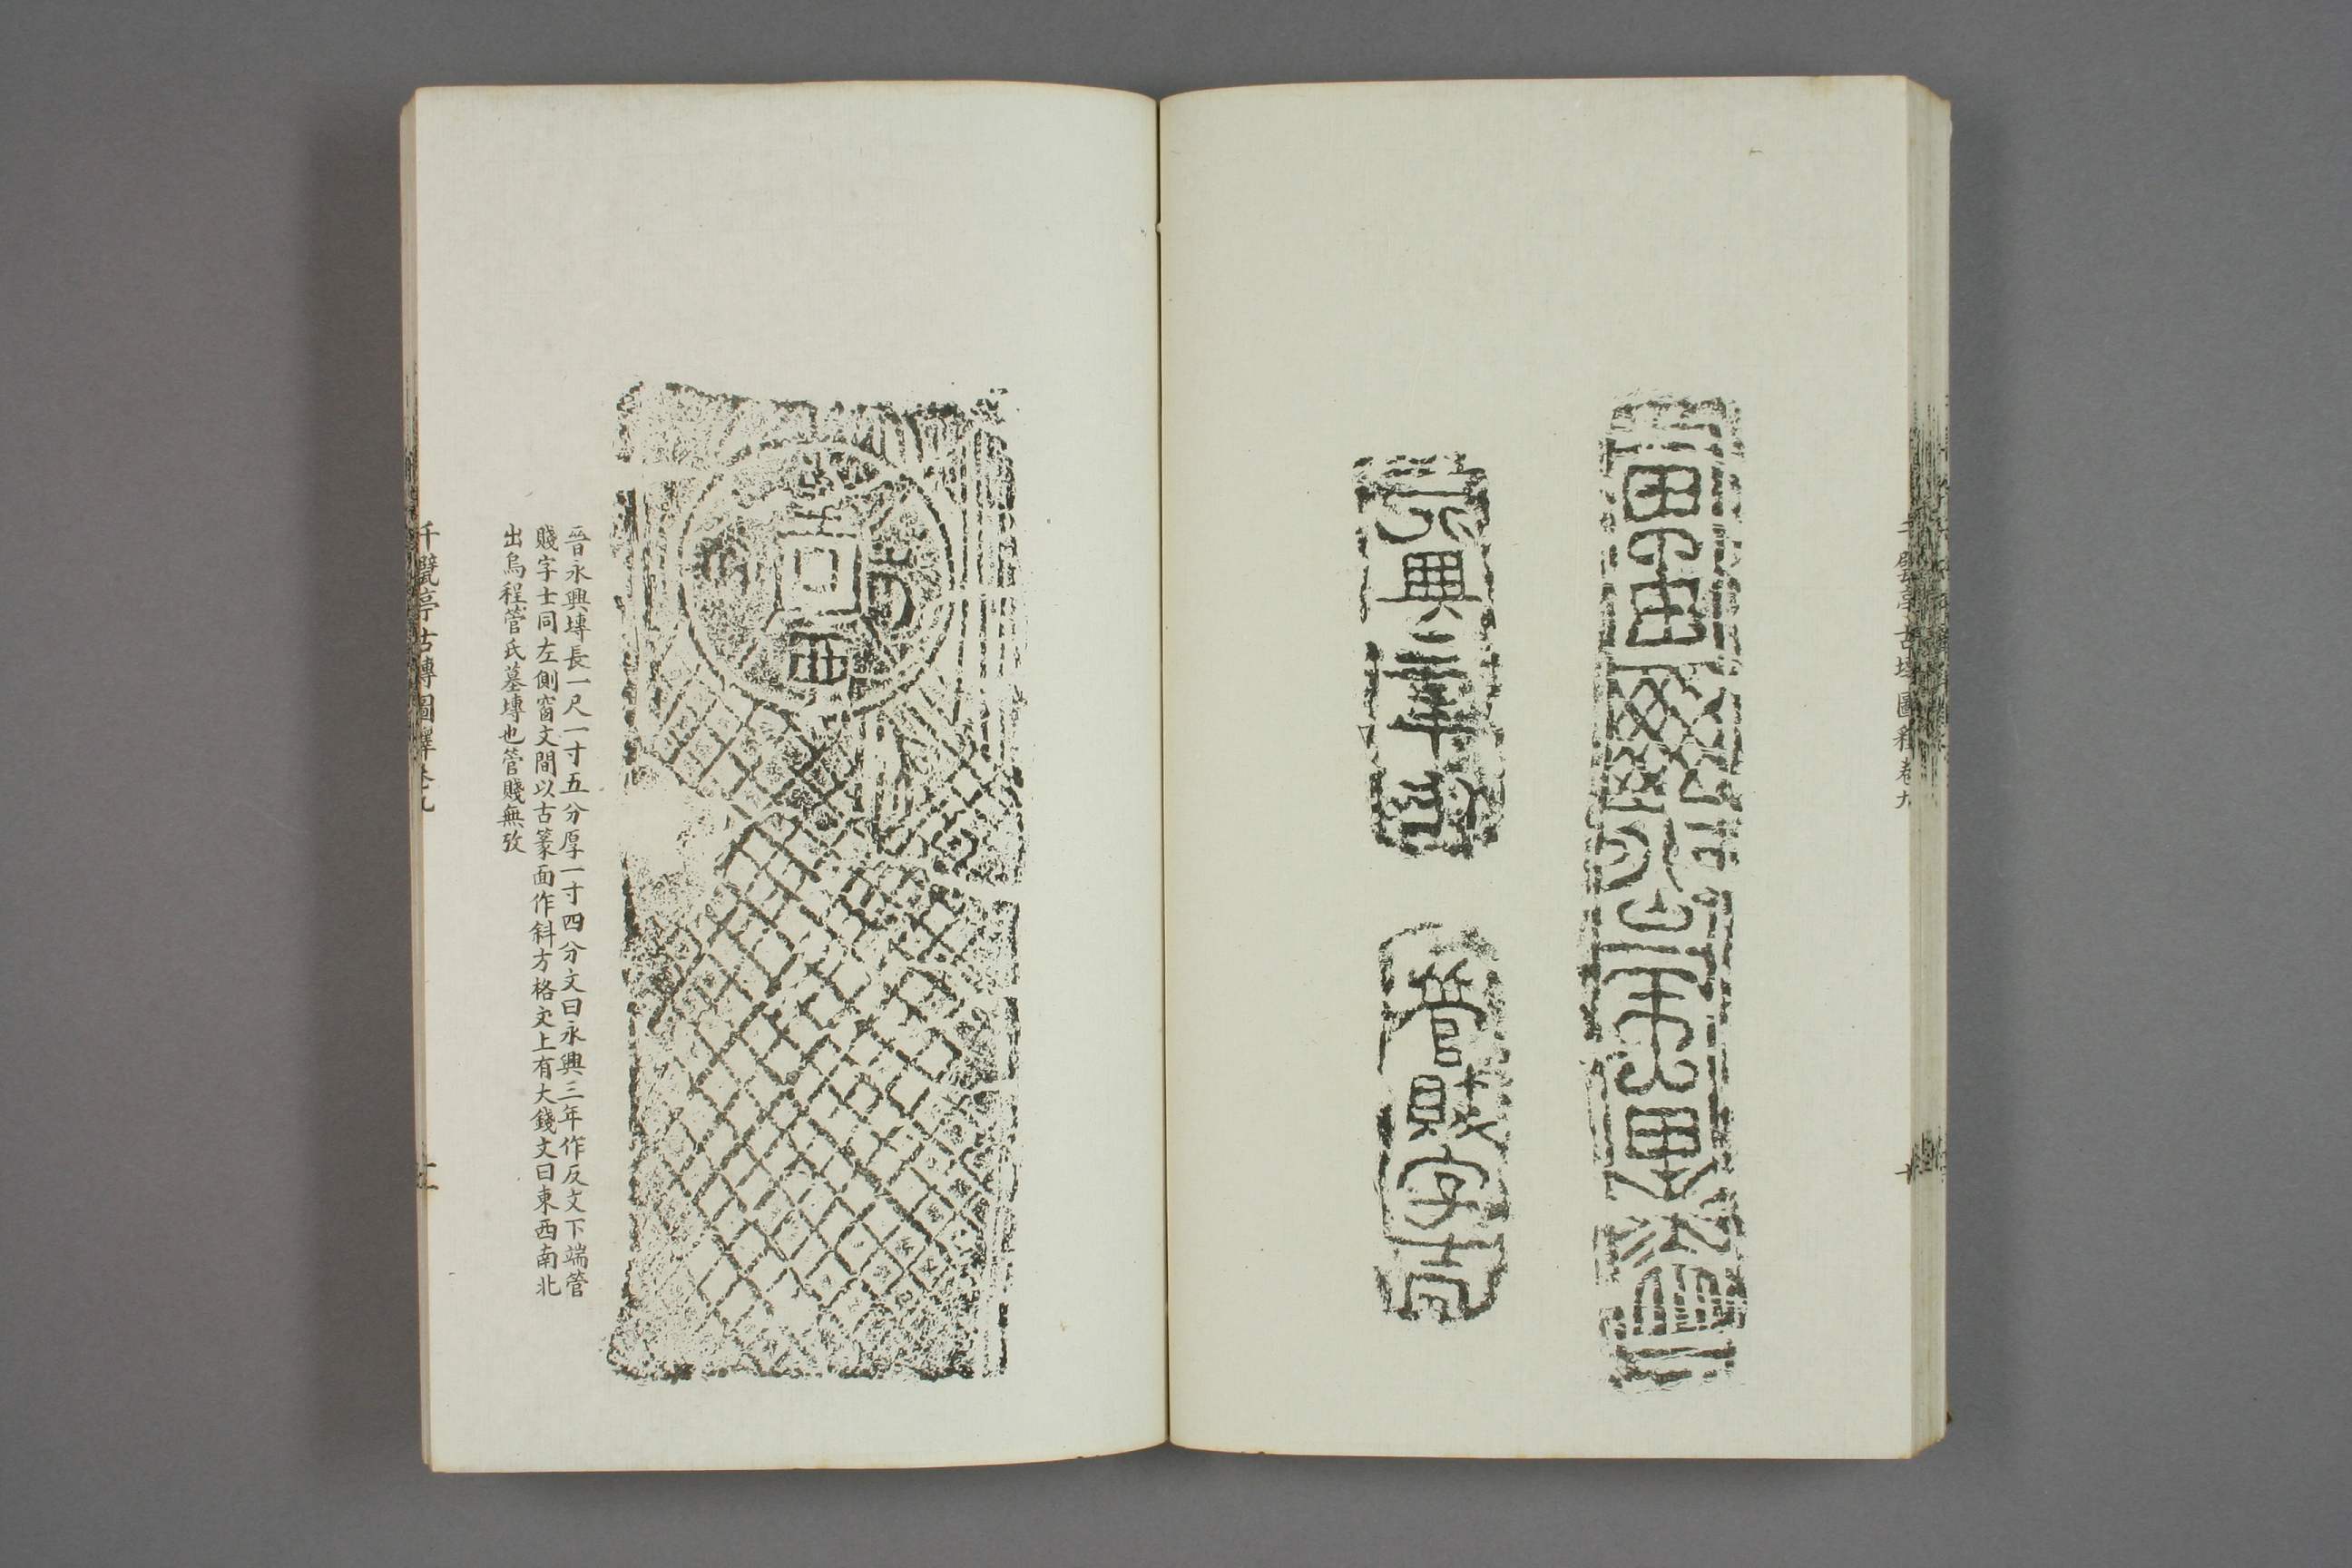 千甓亭古塼圖釋卷九
興三年作
管賤字士同
西
晉永興塼長一尺一寸五分厚一寸四分文曰永興三年作反文下端管
賤字士同左側窗文間以古篆面作斜方格文上有大錢文曰東西南北
出烏程管氏墓塼也管賤無攷
千甓亭古塼圖釋卷九